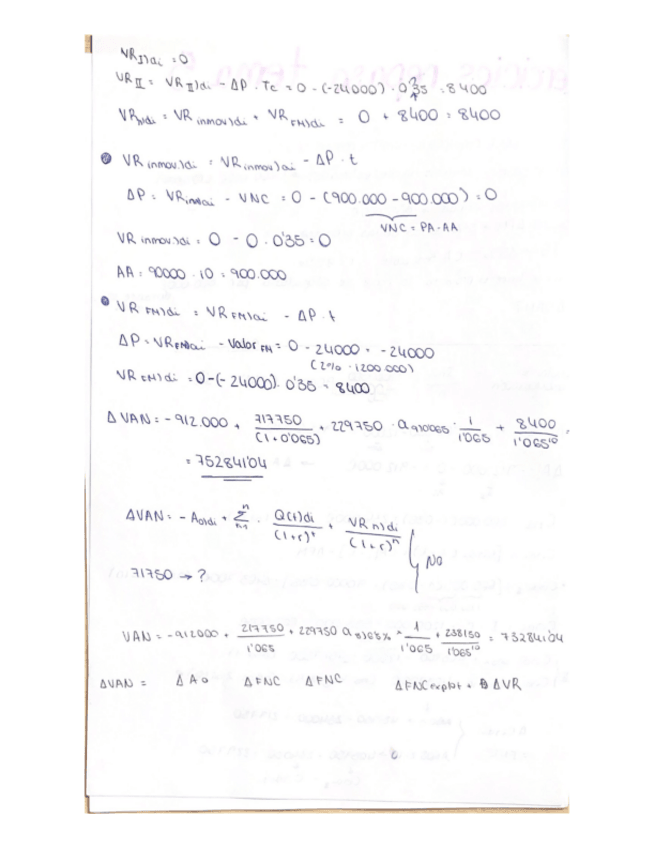 VR II)ai = 0
VR II = VR II)di - ΔP · Tc = 0 - (-24000) · 0'35 = 8400
VRn)di = VR inmov)di + VR FM)di = 0 + 8400 = 8400
VR inmov)di = VR inmov)ai - ΔP · t
ΔP = VRinm)ai - VNC = 0 - (900.000 - 900.000) = 0
VNC = PA - AA
VR inmov)di = 0 - 0 · 0'35 = 0
AA = 90000 · 10 = 900.000
VR FM)di = VR FM)ai - ΔP · t
ΔP = VRFM)ai - Valor FM = 0 - 24000 = -24000
(2% · 1200000)
VR FM)di = 0 - (-24000) · 0'35 = 8400
ΔVAN = -912.000 + 717750/(1+0'065) + 229750 · a 9|0'065 · 1/1'065 + 8400/1'065^10
= 75284'04
ΔVAN = - A0)di + Σ · Q(t)di/(1+r)^t + VR n)di/(1+r)^n } No
71750 → ?
VAN = -912000 + 217750/1'065 + 229750 a 8|6'5% · 1/1'065 + 238150/1'065^10 = 73284'04
ΔVAN = ΔA0 ΔFNC ΔFNC ΔFNC explot + ΔVR